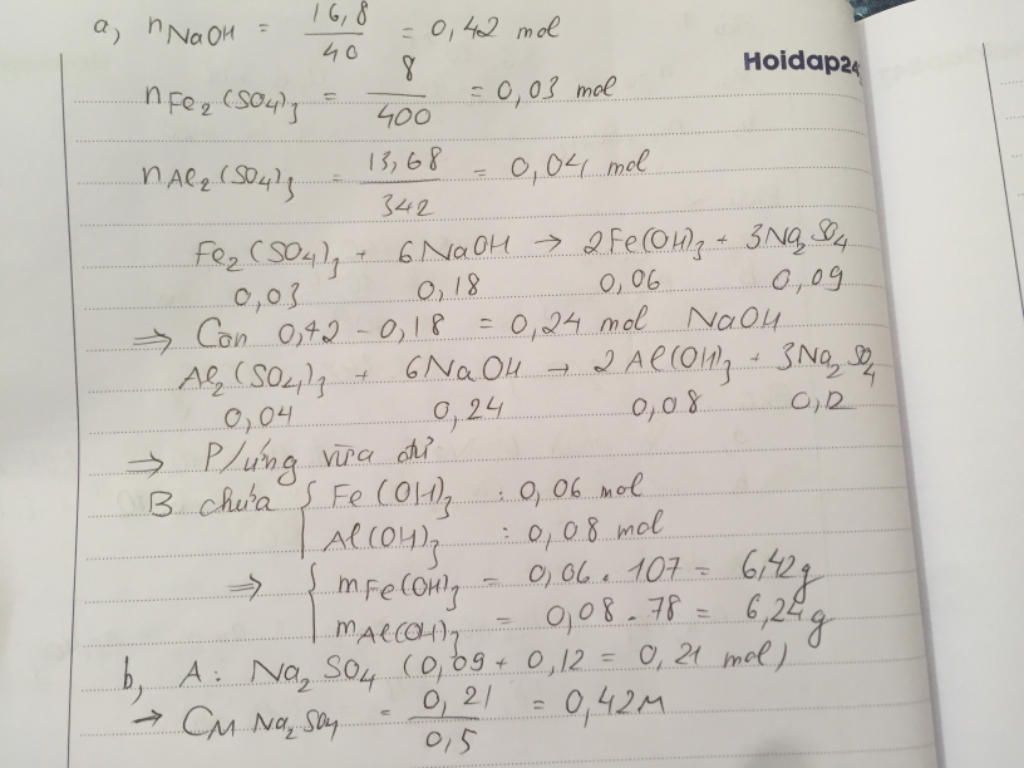 a, nNaOH = 16,8/40 = 0,42 mol
Hoidap24
nFe2(SO4)3 = 8/400 = 0,03 mol
nAl2(SO4)3 = 13,68/342 = 0,04 mol
Fe2(SO4)3 + 6NaOH → 2Fe(OH)3 + 3Na2SO4
0,03 0,18 0,06 0,09
⇒ Còn 0,42 - 0,18 = 0,24 mol NaOH
Al2(SO4)3 + 6NaOH → 2Al(OH)3 + 3Na2SO4
0,04 0,24 0,08 0,12
⇒ P/ứng vừa đủ
B chứa { Fe(OH)3 : 0,06 mol
Al(OH)3 : 0,08 mol
⇒ { mFe(OH)3 = 0,06 . 107 = 6,42g
mAl(OH)3 = 0,08 . 78 = 6,24g
b, A: Na2SO4 (0,09 + 0,12 = 0,21 mol)
→ CM Na2SO4 = 0,21/0,5 = 0,42M